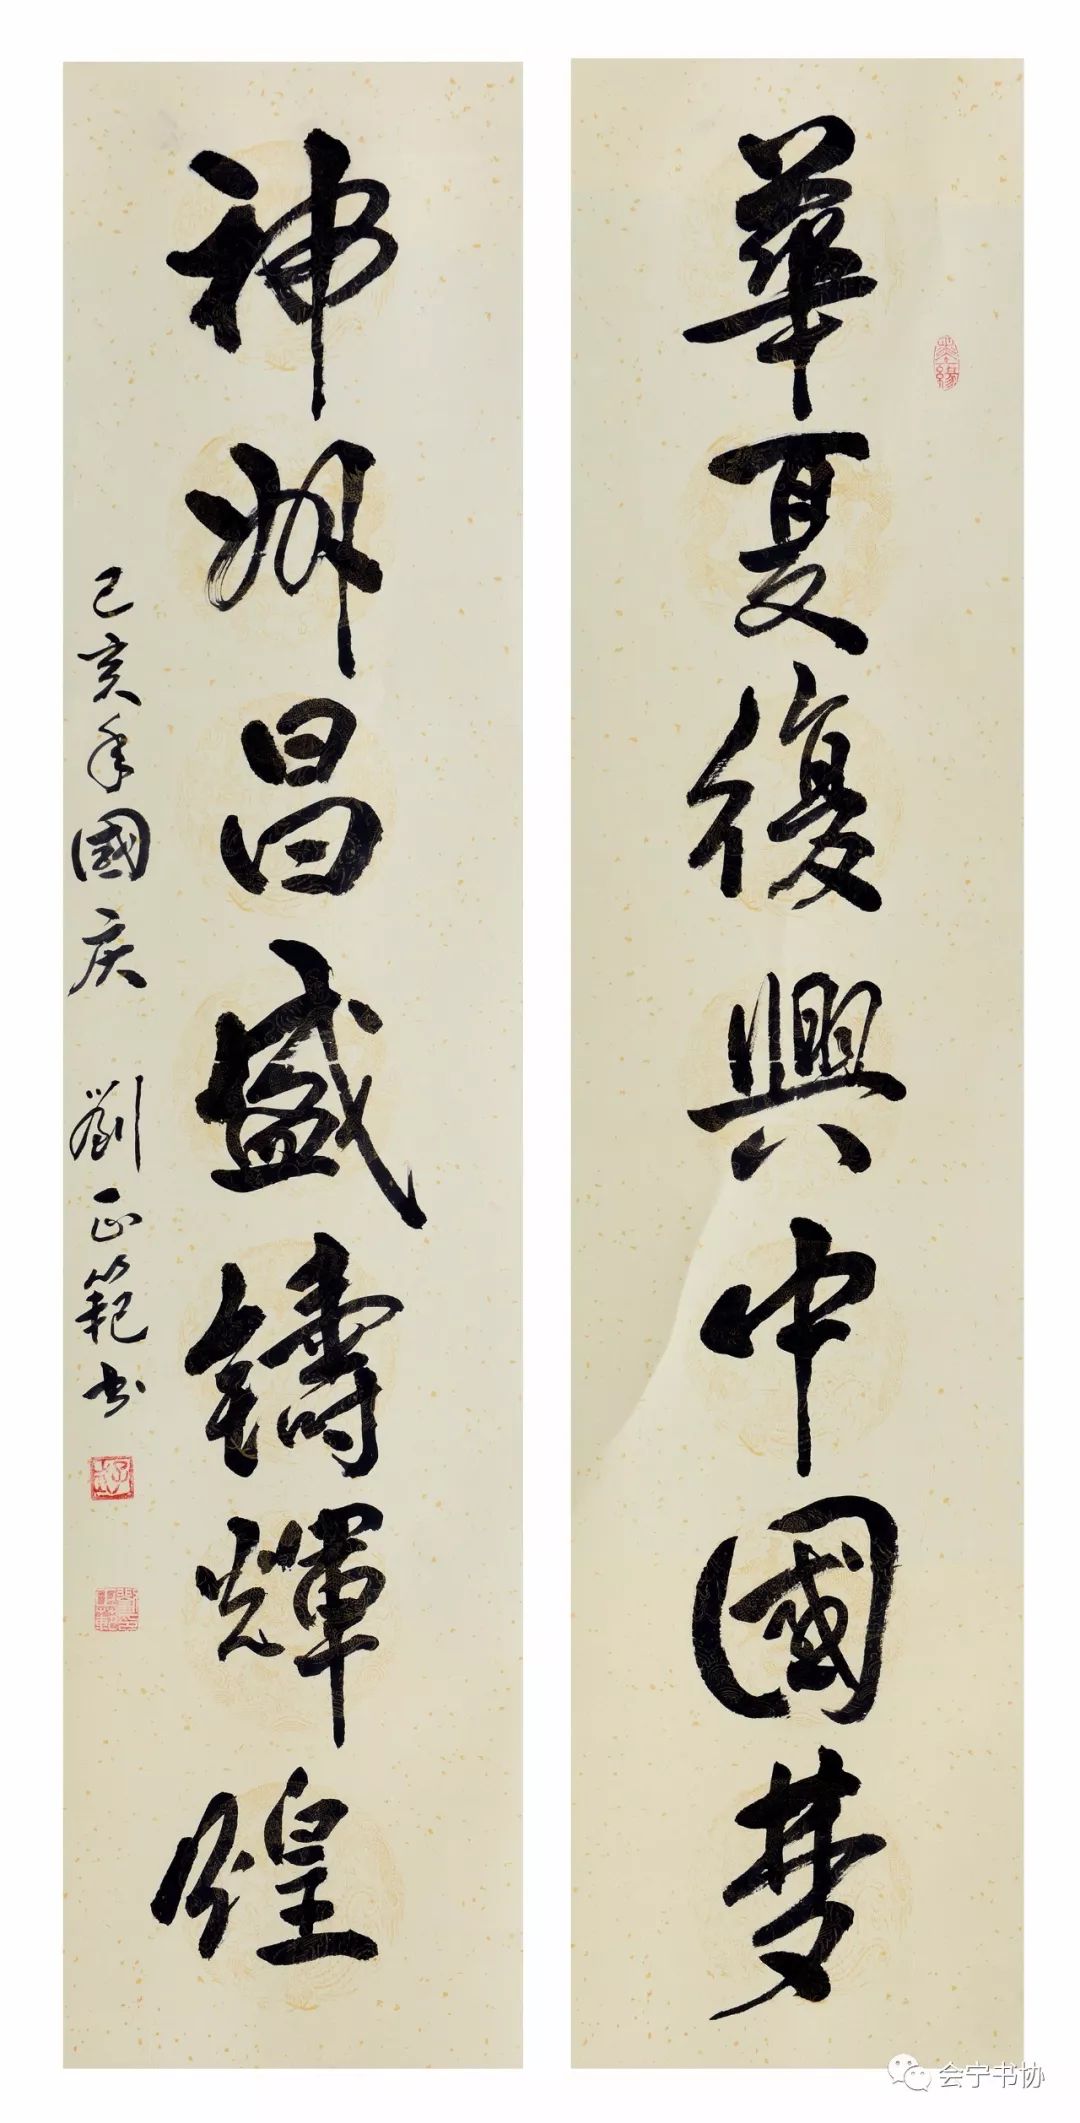 華夏復興中國梦
神州昌盛鑄輝煌
己亥年國庆 劉正範书
会宁书协